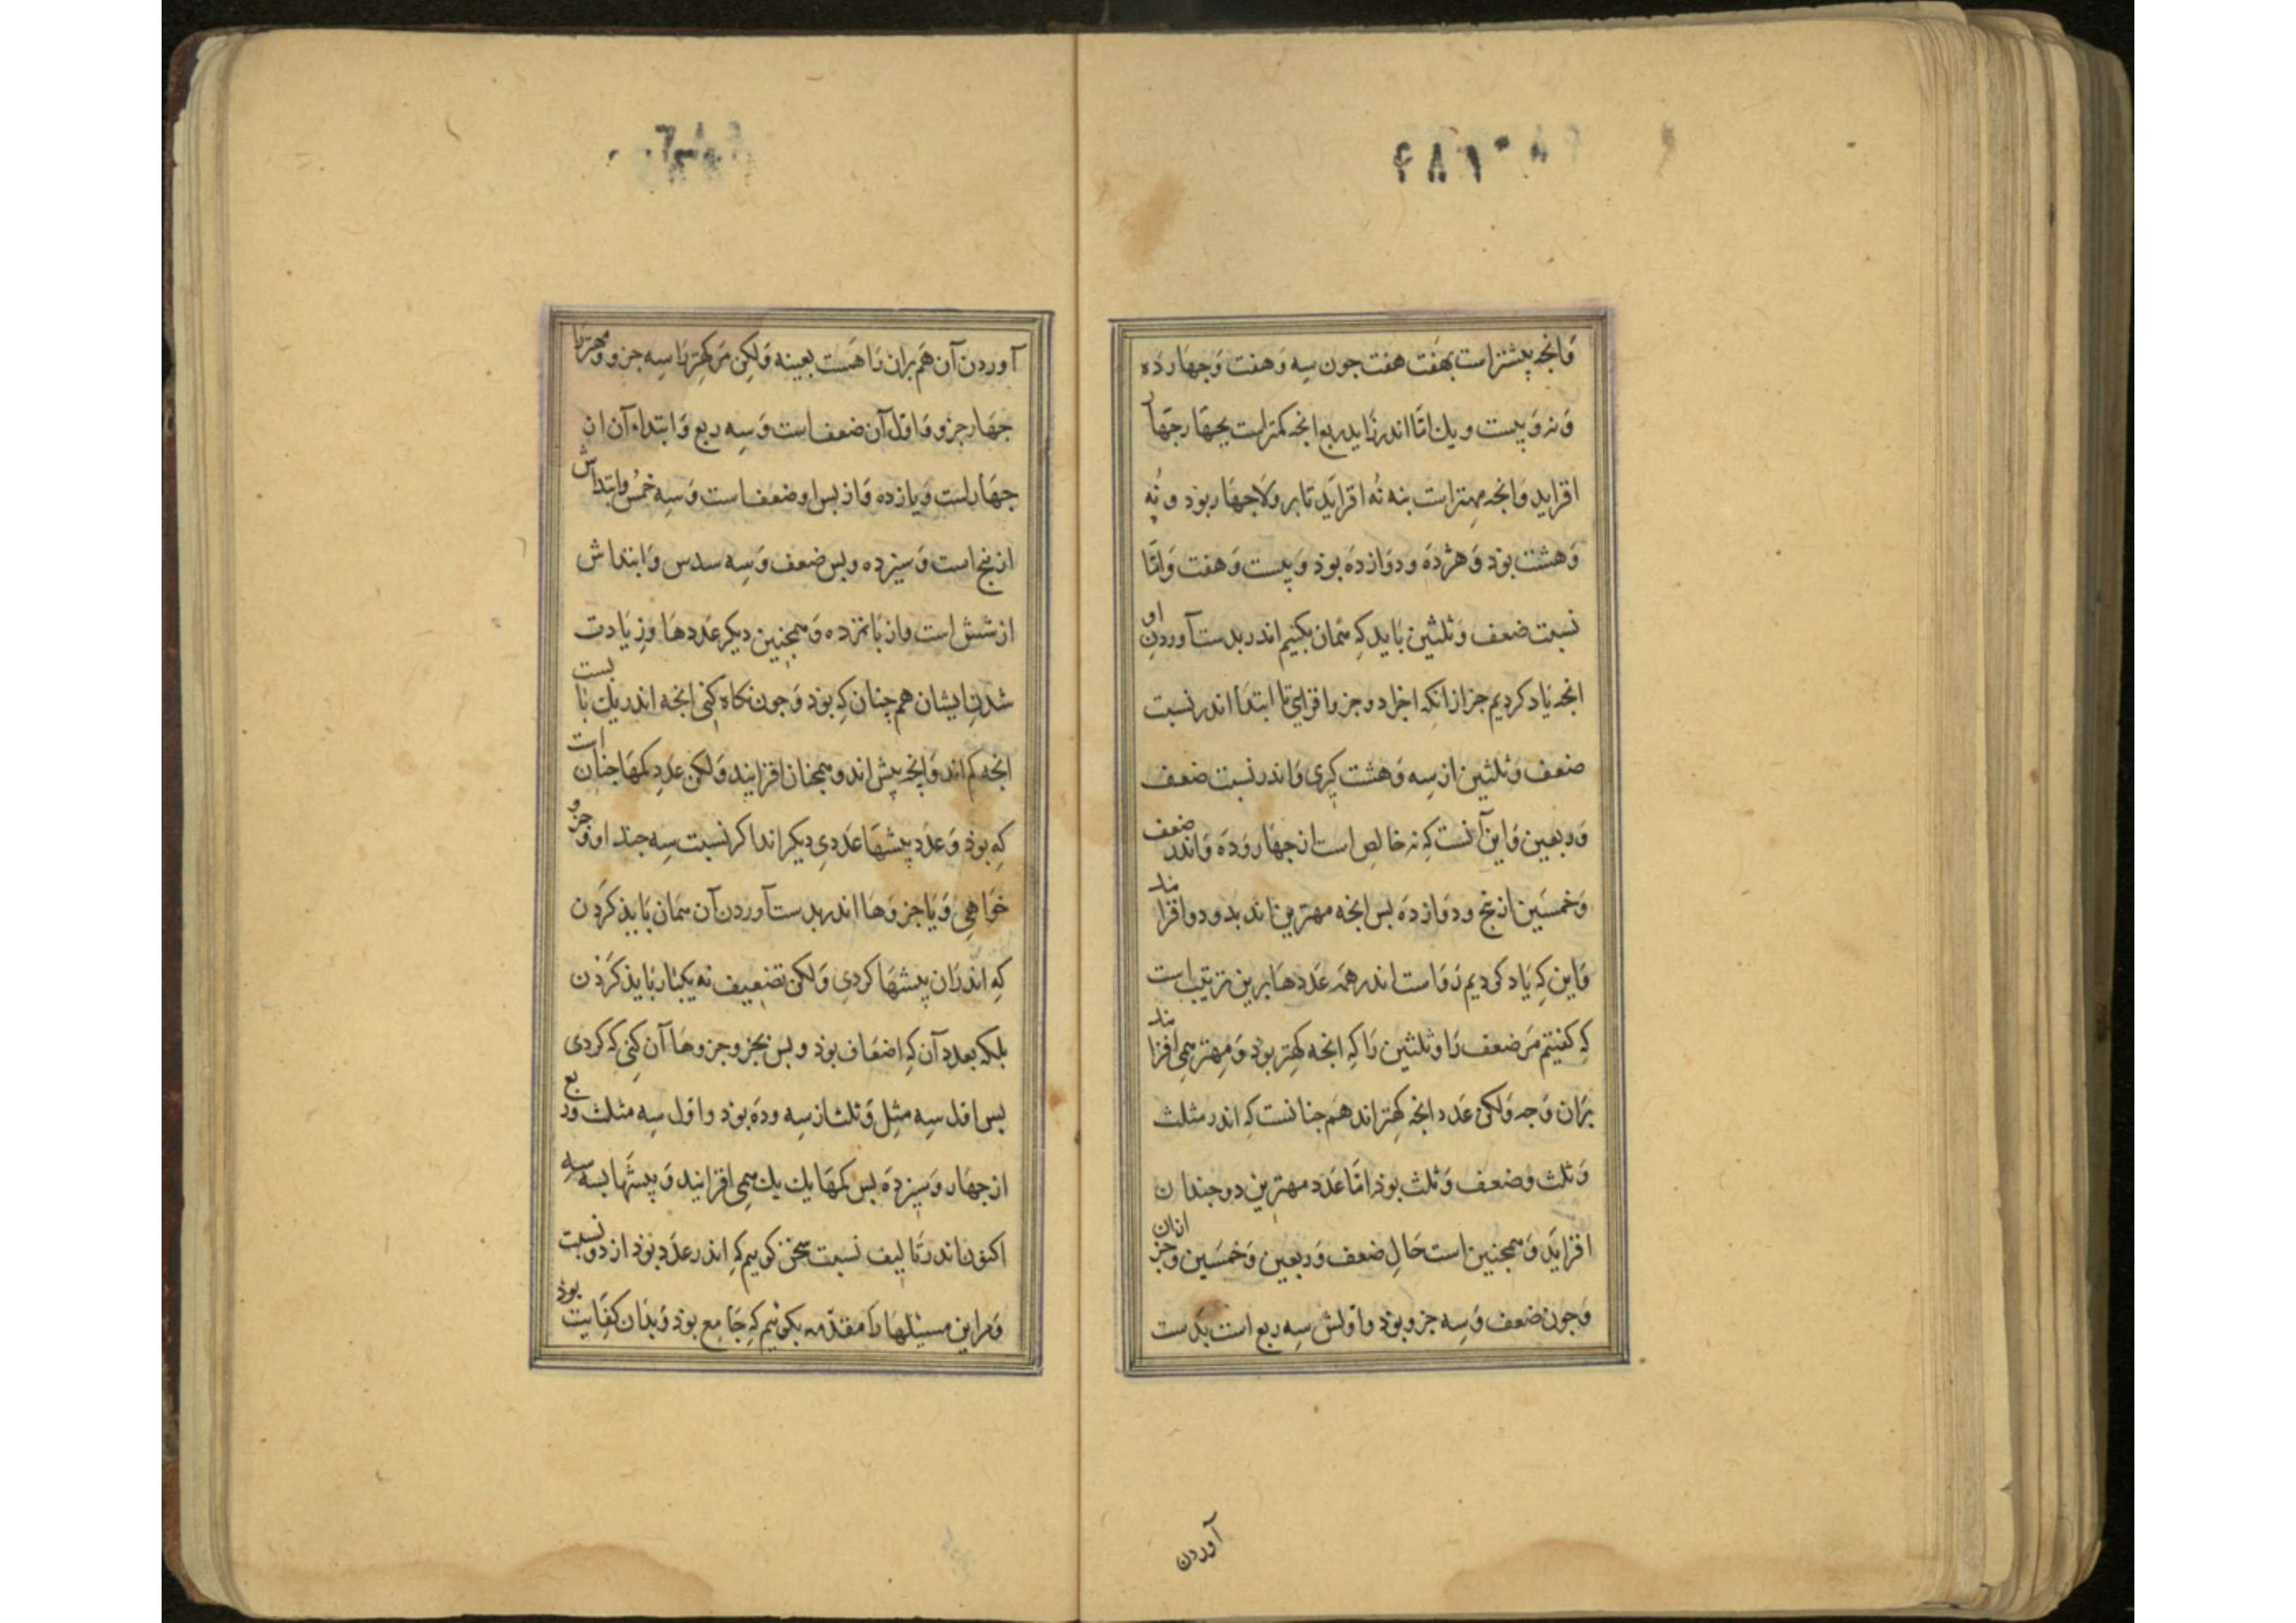 وانجه پیشتر است بهفت هفت جون سه و هفت و جهارده
و نه و بیست و یك امّا اندر زاید ربع انجه کمتر است بجهار جهار
افزاید و انجه مهتر است بنه نُه افزاید تا بر ولا جهار بوذ و نُه
و هشت بوذ و هژده و دوازده بوذ و بیست و هفت و امّا
نسبت ضعف و ثلثین باید که همان بکنیم اندر بدست آوردن او
انجه یاد کردیم جز از انکه اجل دو جزو افزایی تا ابتدا اندر نسبت
ضعف و ثلثین از سه و هشت کیری و اندر نسبت ضعف
و ربعین و این آنست که نه خالص است از جهار و ده و اندر ضعف
و خمسین از پنج و دوازده بس انجه مهترین اند بدو دو افزایند
و این که یاد کردیم رواست اندر همه عددها برین ترتیب است
که کفتیم مر ضعف را و ثلثین را که انجه کهتر بوذ و مهتر همی افزایند
بران وجه ولکن عدد انجه کهتراند هم جنانست که اندر مثلث
و ثلث و ضعف و ثلث بوذ امّا عدد مهترین دو جندان
افزاید و همجنین است حال ضعف و ربعین و خمسین و جز ازان
و جون ضعف و سه جزو بوذ و اولش سه ربع است بدست
آوردن
آوردن آن هم بران راهست بعینه ولکن مر کهتر را سه جزو و مهتر را
جهار جزو و اوّل آن ضعف است و سه ربع و ابتداء آن از
جهار است و یازده و از بس او ضعف است و سه خمس و ابتداش
از پنج است و سیزده و بس ضعف و سه سدس و ابتداش
از شش است و از بانزده و همجنین دیکر عددها و زیادت
شدن ایشان هم جنان که بوذ و جون نکاه کنی انجه اندر یك نسبت با
انجه کم اند و انجه بیش اند و همجنان افزایند ولکن عدد کمها جنان است
که بوذ و عدد بیشها عددی دیکر اند اکر نسبت سه جند او و جزو
خواهی و یا جزوها اندر بدست آوردن آن همان بایذ کردن
که اندران پیشها کردی ولکن تضعیف نه یکبار بایذ کردن
بلکه بعدد آن که اضعاف بوذ و بس بجزو و جزوها آن کنی که کردی
بس اول سه مثل و ثلث از سه و ده بوذ و اول سه مثل و ربع
از جهار و سیزده بس کمها یك یك همی افزایند و بیشها بسه سه
اکنون اندر تالیف نسبت سخن کوییم که اندر عدد بوذ از دو نسبت
و مر این مسیٔلها را مقدّمه بکوییم که جامع بوذ و بذان کفایت بوذ